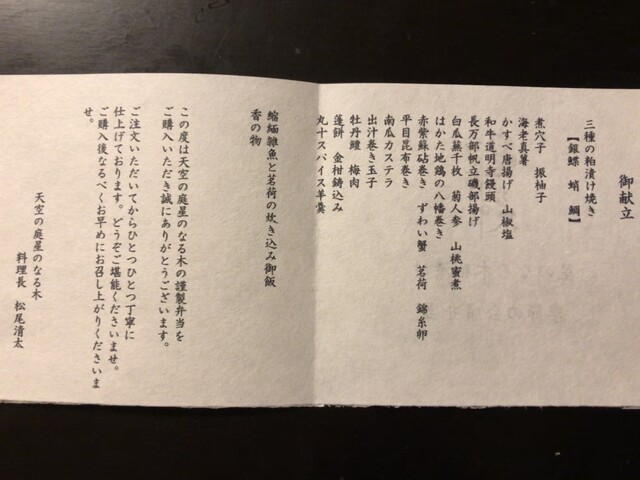 御献立
三種の粕漬け焼き
【銀鰈　蛸　鯛】
煮穴子　振柚子
海老真薯
かすべ唐揚げ　山椒塩
和牛道明寺饅頭
長万部帆立磯部揚げ
白瓜蕪千枚　菊人参　山桃蜜煮
はかた地鶏の八幡巻き
赤紫蘇砧巻き　ずわい蟹　茗荷　錦糸卵
平目昆布巻き
南瓜カステラ
出汁巻き玉子
牡丹鱧　梅肉
蓬餅　金柑鋳込み
丸十スパイス羊羹
縮緬雑魚と茗荷の炊き込み御飯
香の物
この度は天空の庭星のなる木の謹製弁当を
ご購入いただき誠にありがとうございます。
ご注文いただいてからひとつひとつ丁寧に
仕上げております。どうぞご堪能くださいませ。
ご購入後なるべくお早めにお召し上がりくださいま
せ。
天空の庭星のなる木
料理長　松尾清太